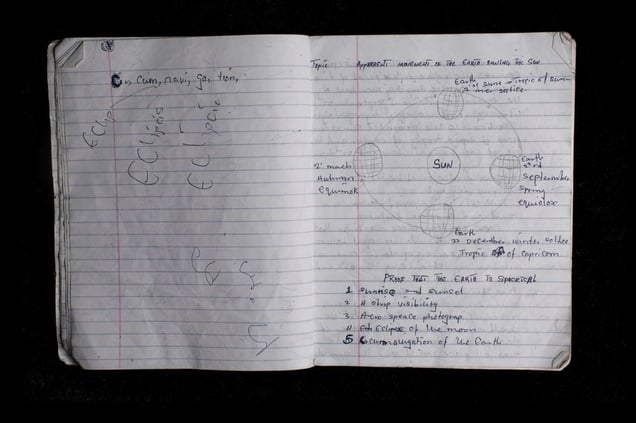 Cir, cum, navi, ga, tion,
ECLip
ECLipais
ECLipaic
Topic Apparent movement of the Earth raving the sun
Earth
21 sune - Tropic of sum-
mer soltice.
SUN
21 mach
Autumn
equinok
Earth
23rd
september
spring
equiolox
Earth
22 December winter soltice
Tropic of capricorn
PROOF THAT THE EARTH IS SPHERICAL
1 sunrise and sunset
2 A ship visibility
3. Aero speace photograp
4 Eclipse of the moon
5 Cicumnavigation of the Earth